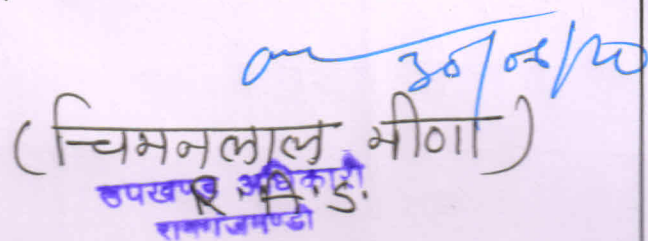 30/06/20
(चिमनलाल मीणा)
उपखण्ड अधिकारी
R.A.S.
रामगंजमण्डी